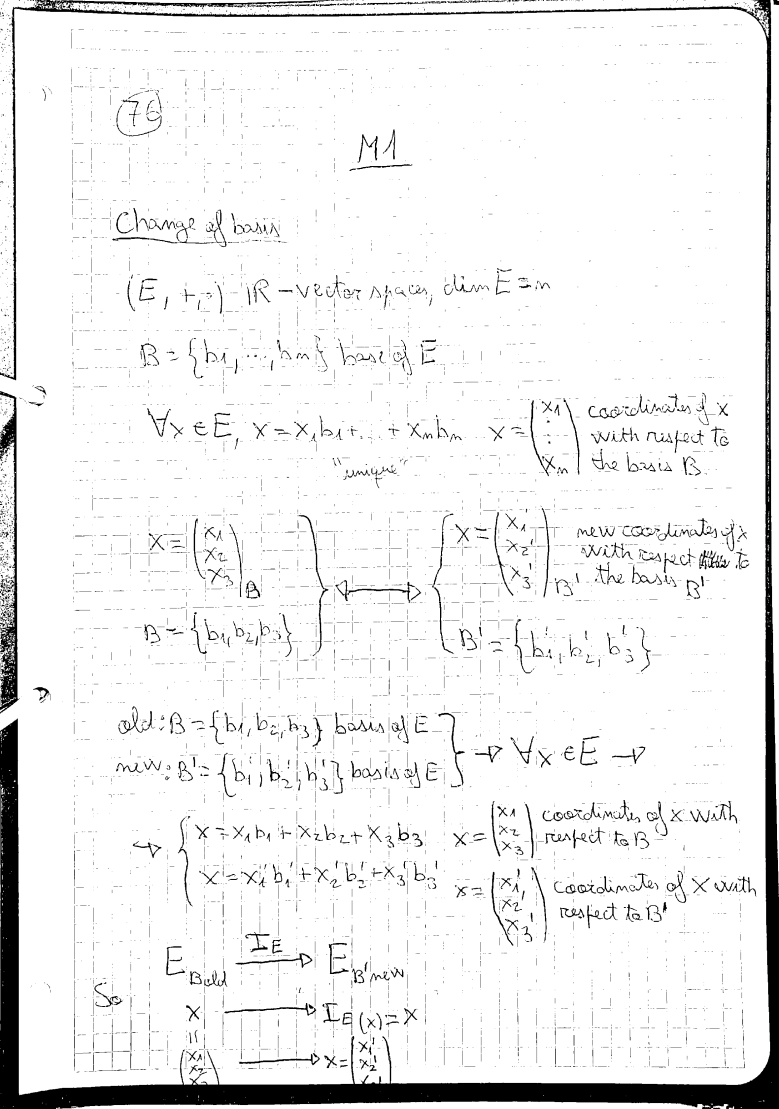 76
M1
Change of basis
(E, +, ·) ℝ-vector spaces, dim E = n
B = {b1, ..., bn} base of E
∀x ∈ E, x = x1b1 + ... + xnbn x = (x1 ⋮ xn) coordinates of x with respect to the basis B.
"unique"
x = (x1 x2 x3)B ↔ x = (x1' x2' x3')B' new coordinates of x with respect to the basis B'
B = {b1, b2, b3} B' = {b1', b2', b3'}
old: B = {b1, b2, b3} basis of E
new: B' = {b1', b2', b3'} basis of E } → ∀x ∈ E →
→ { x = x1b1 + x2b2 + x3b3 x = (x1 x2 x3) coordinates of x with respect to B
x = x1'b1' + x2'b2' + x3'b3' x = (x1' x2' x3') coordinates of x with respect to B'
E B old —IE→ E B' new
So
x → IE(x) = x
=
(x1 x2 x3) → x = (x1' x2' x3')